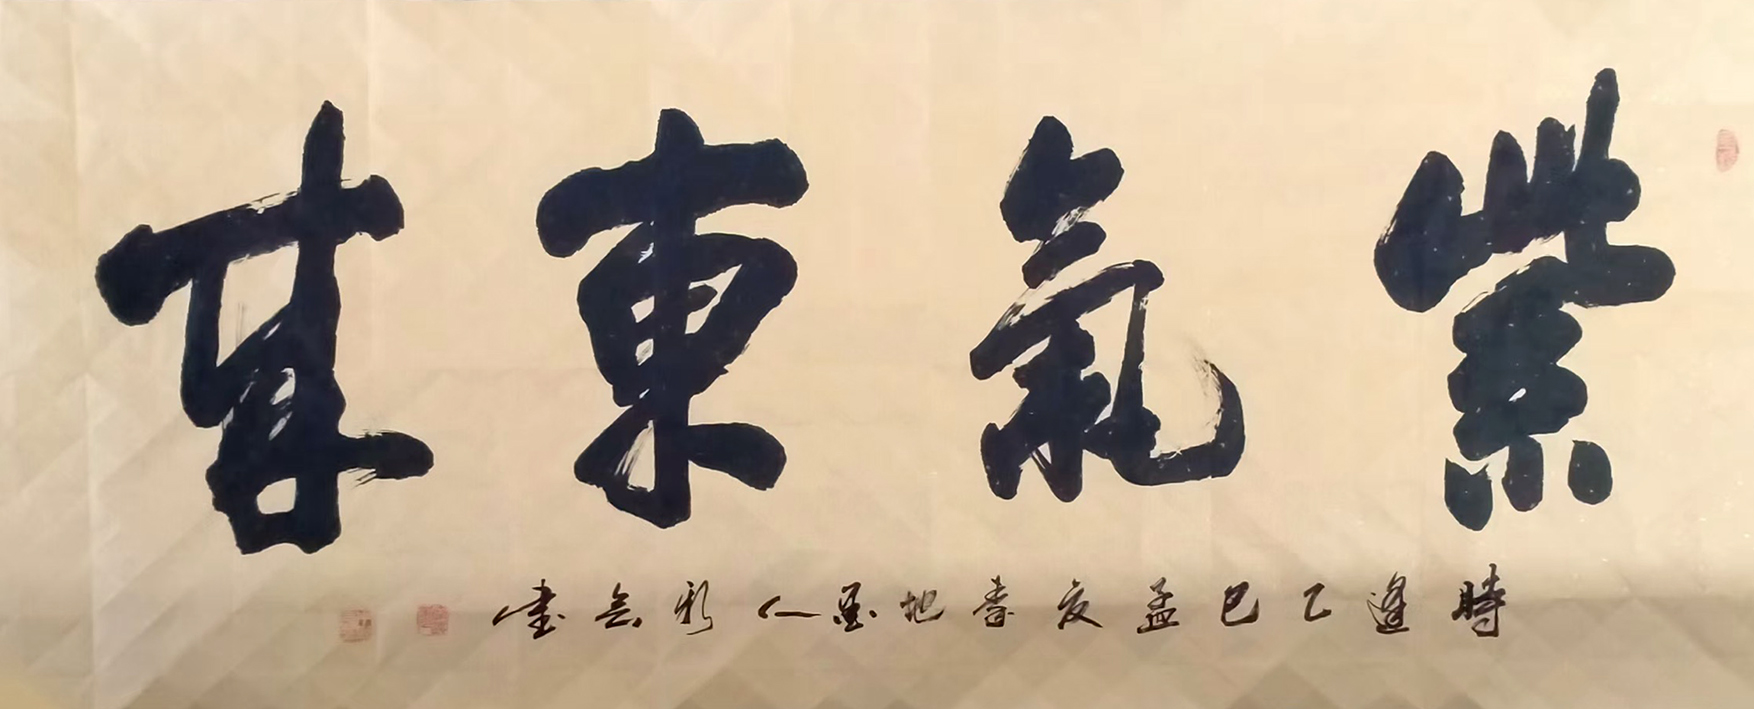 紫氣東來
時逢乙巳孟夏春地墨人彩云書